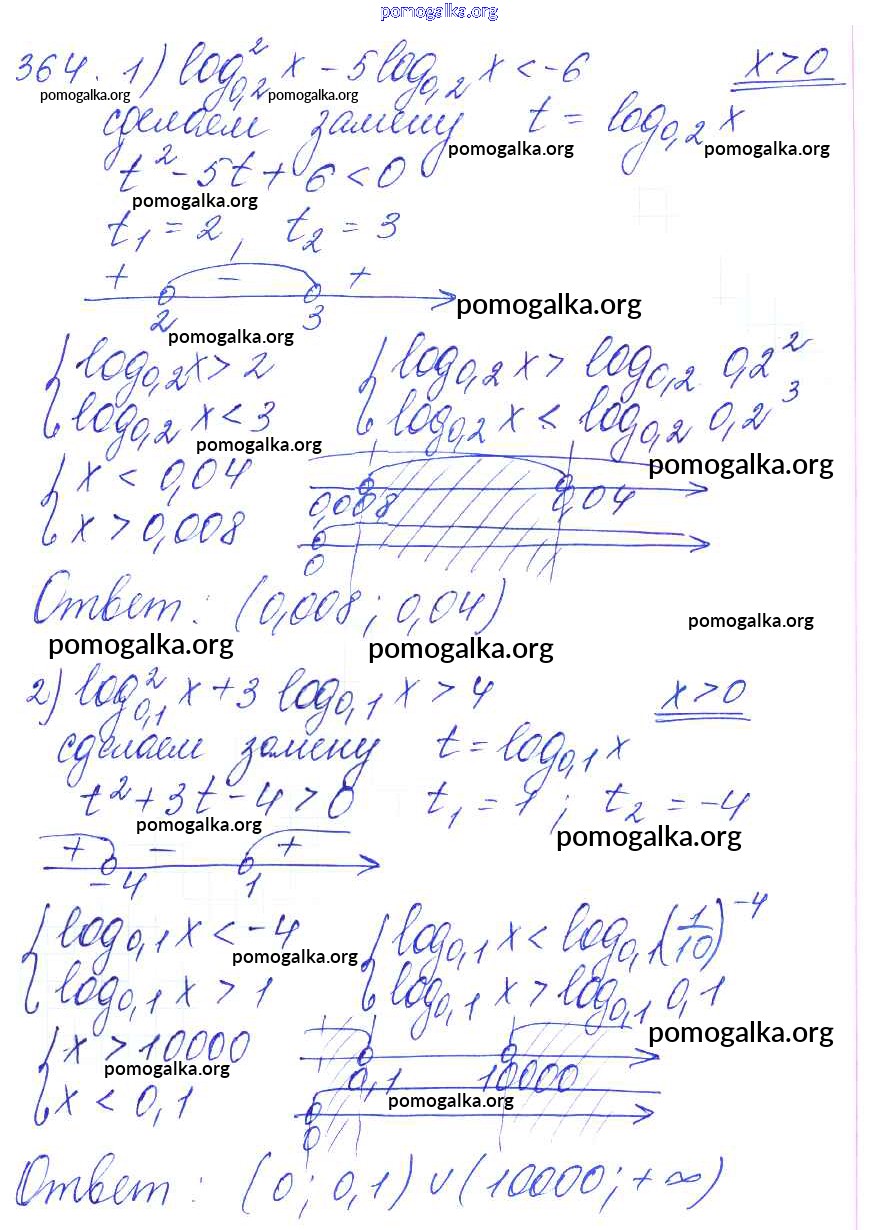 pomogalka.org
364. 1) log²₀,₂ x − 5 log₀,₂ x < −6    x > 0
pomogalka.org pomogalka.org
сделаем замену t = log₀,₂ x
pomogalka.org pomogalka.org
t² − 5t + 6 < 0
pomogalka.org
t₁ = 2, t₂ = 3
+ − +
2 3
pomogalka.org
pomogalka.org
{ log₀,₂ x > 2    { log₀,₂ x > log₀,₂ 0,2²
{ log₀,₂ x < 3    { log₀,₂ x < log₀,₂ 0,2³
pomogalka.org
pomogalka.org
{ x < 0,04    0,008 0,04
{ x > 0,008    0
Ответ: (0,008; 0,04)
pomogalka.org pomogalka.org pomogalka.org
2) log²₀,₁ x + 3 log₀,₁ x > 4    x > 0
сделаем замену t = log₀,₁ x
t² + 3t − 4 > 0    t₁ = 1; t₂ = −4
pomogalka.org pomogalka.org
+ − +
−4 1
{ log₀,₁ x < −4    { log₀,₁ x < log₀,₁ (1/10)⁻⁴
pomogalka.org
{ log₀,₁ x > 1    { log₀,₁ x > log₀,₁ 0,1
pomogalka.org
{ x > 10000    0,1 10000
pomogalka.org
{ x < 0,1    0
pomogalka.org
Ответ: (0; 0,1) ∪ (10000; +∞)